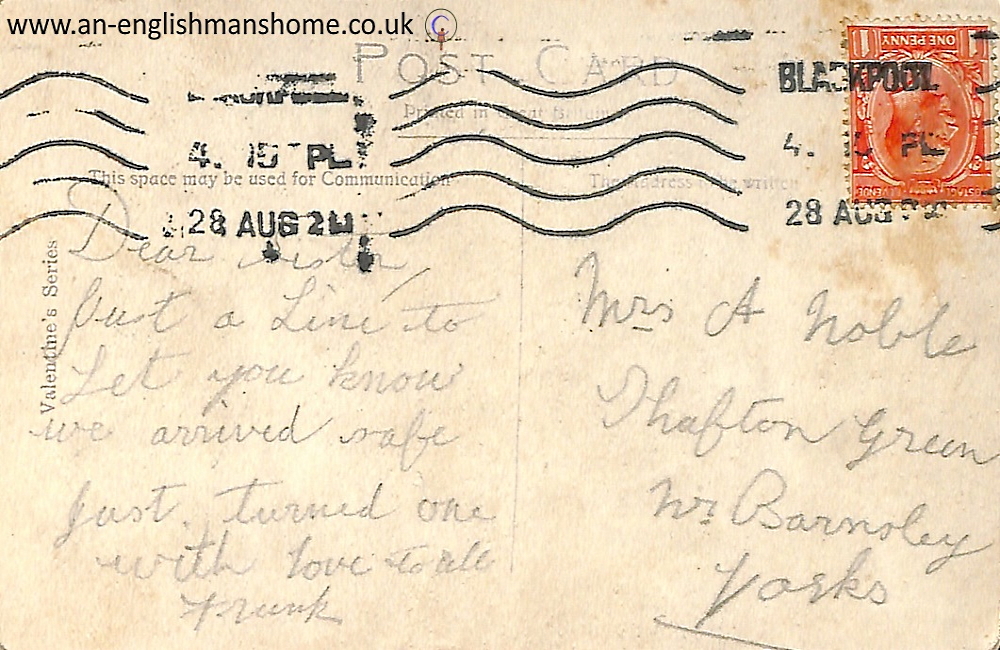 www.an-englishmanshome.co.uk ©
POST CARD
Printed in Great Britain
BLACKPOOL
4. 15 PL
28 AUG
BLACKPOOL
4. PL
28 AUG
ONE PENNY
This space may be used for Communication
The address to be written
Valentine's Series
Dear Sister,
Just a Line to
Let you know
we arrived safe
Just turned one
with love to all
Frank
Mrs A Noble
Thafton Green
Nr Barnsley
Yorks